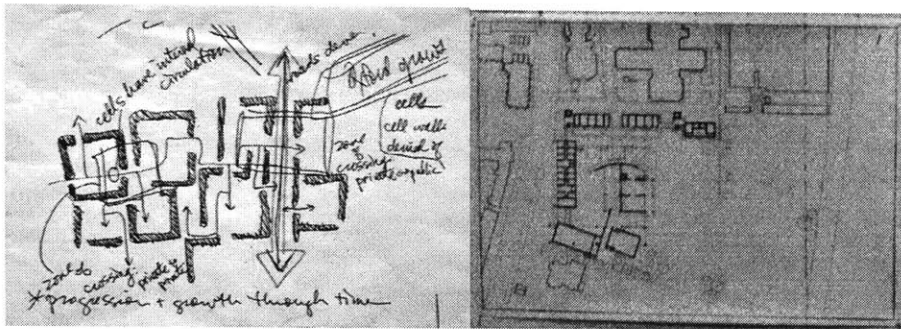 cells have internal
circulation
roads
growth
cells
cell walls
denied of
zone of
crossing:
private public
zone of
crossing:
private
private
* progression + growth through time